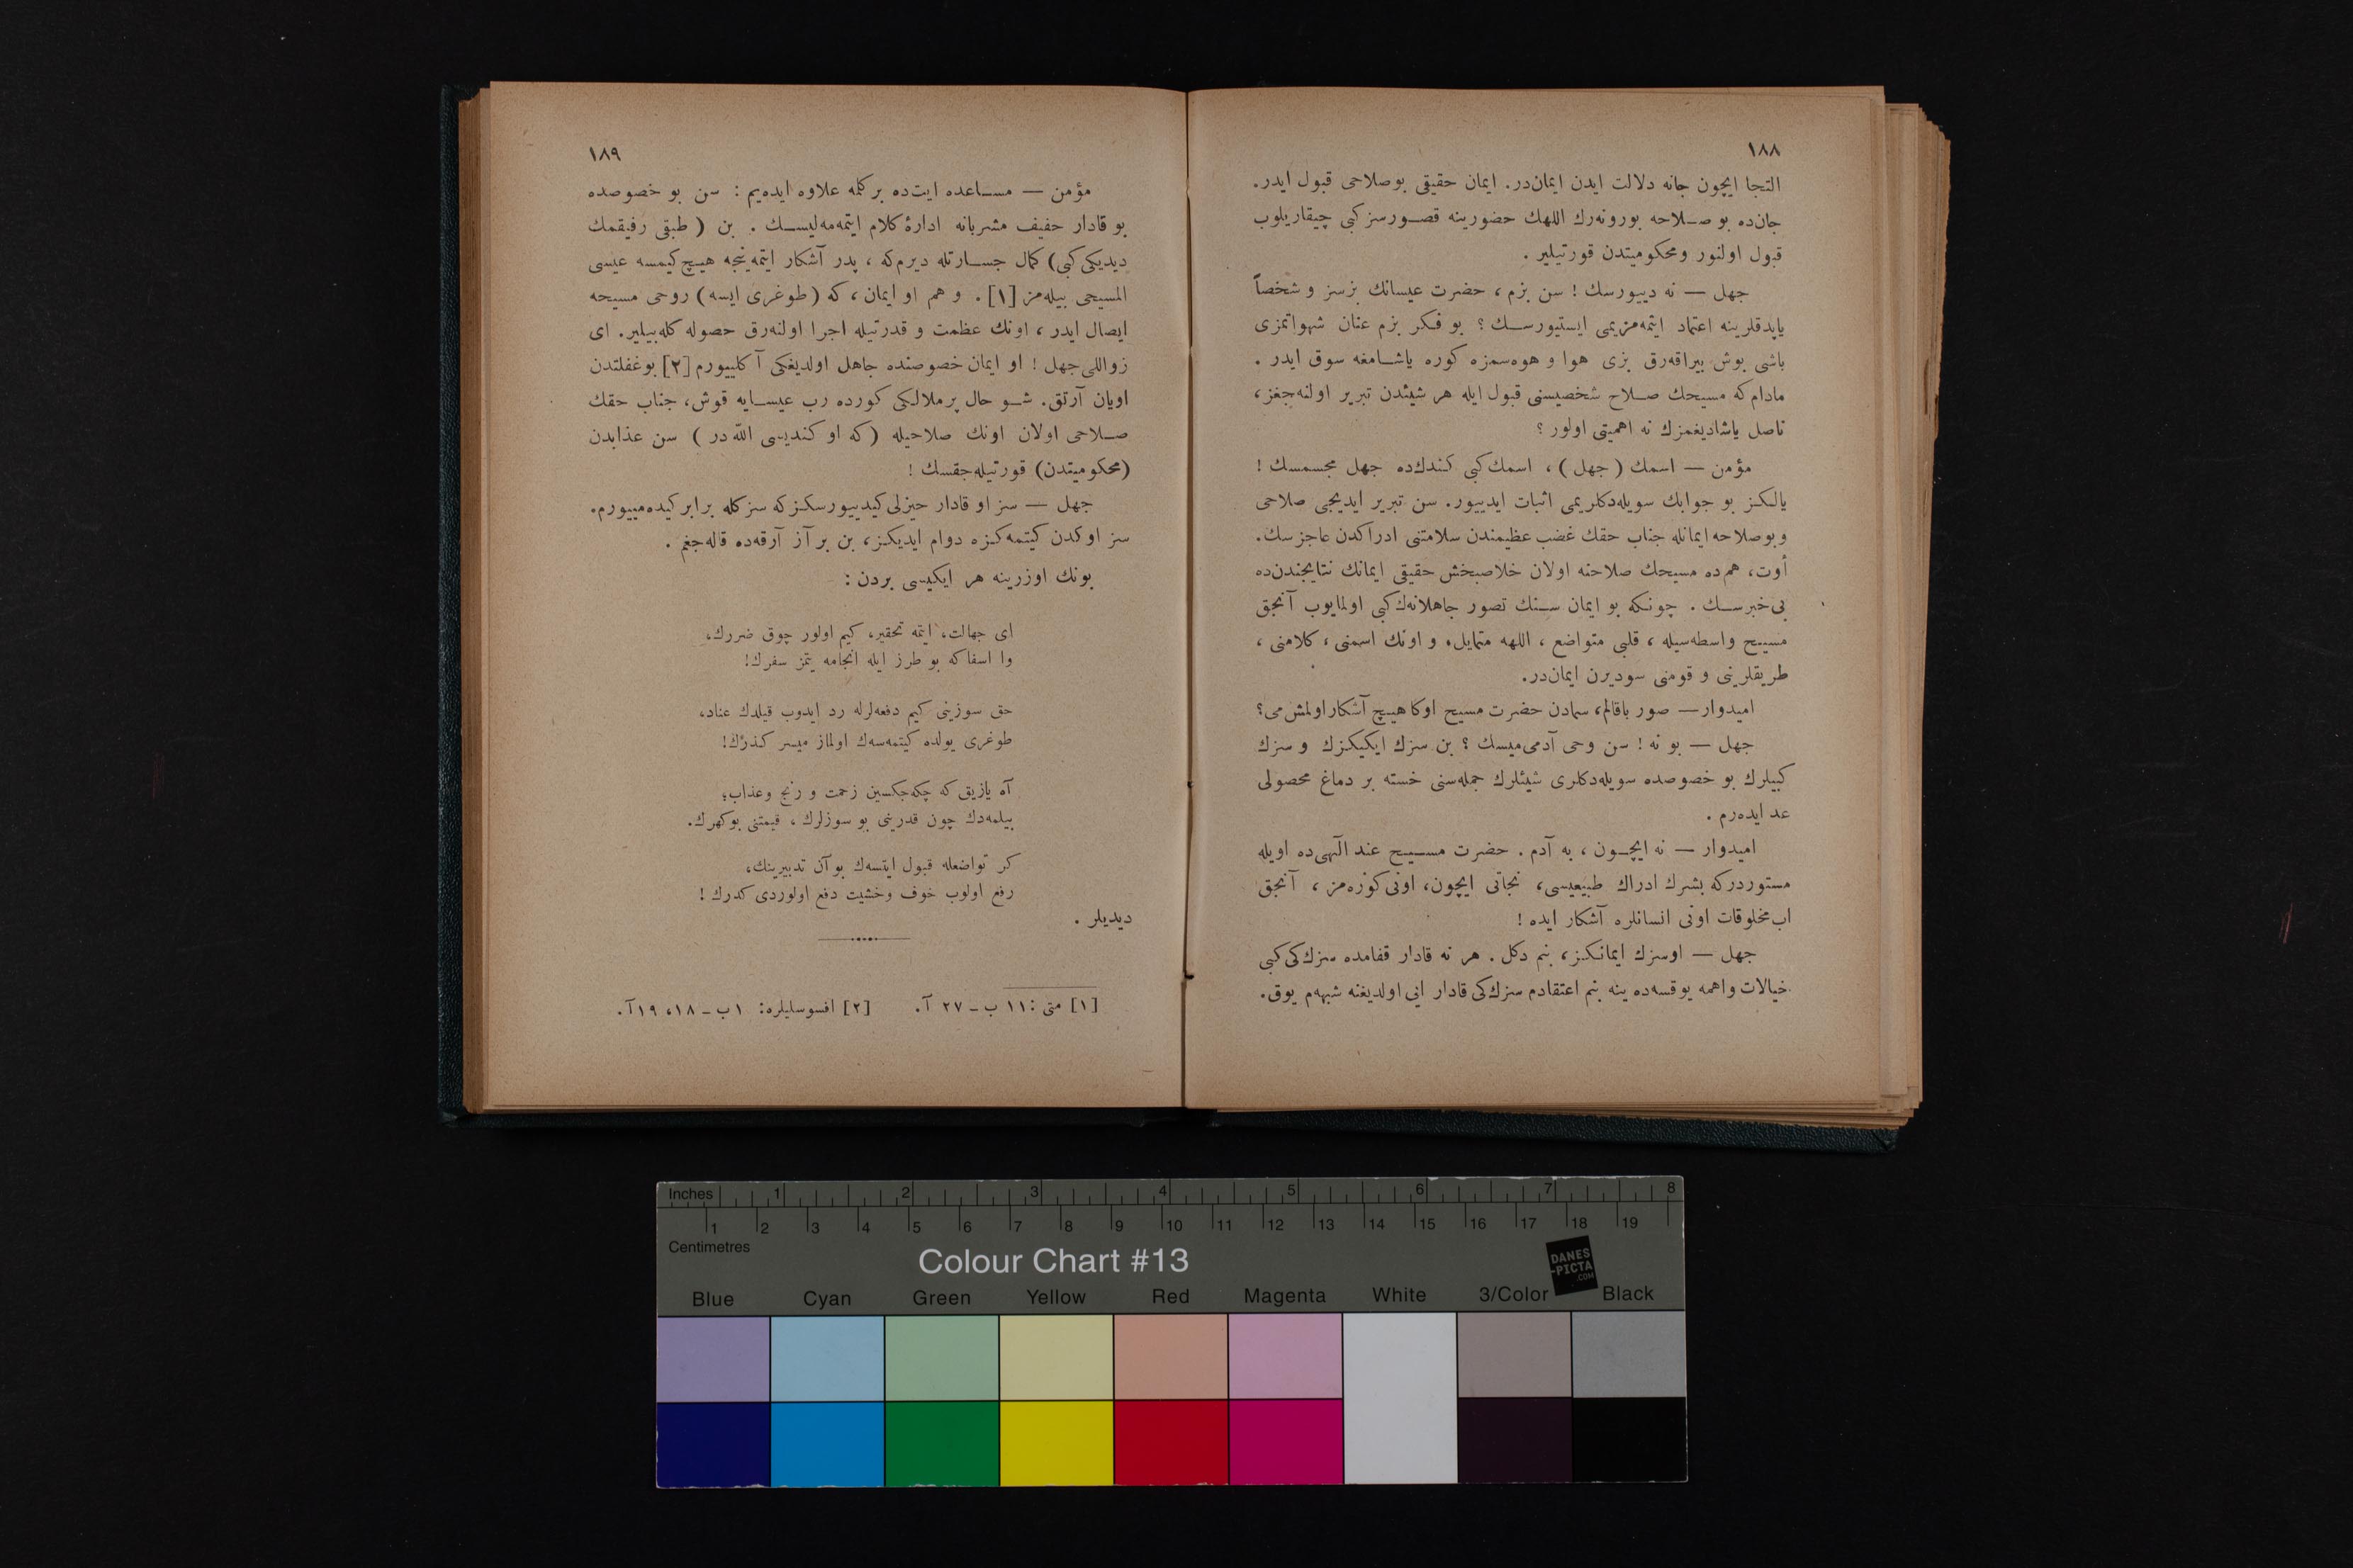 ١٨٨
التجا ایچون جانه دلالت ایدن ایمان‌در. ایمان حقیقی بوصلاحی قبول ایدر.
جان‌ده بو صلاحه بورونه‌رك اللهك حضورینه قصورسز كبی چیقاریلوب
قبول اولنور ومحكومیتدن قورتیلیر .
جهل — نه دییورسك ! سن بزم ، حضرت عیسانك بزسز و شخصاً
یاپدقلرینه اعتماد ایتمه‌مزیمی ایستیورسك ؟ بو فكر بزم عنان شهواتمزی
باشی بوش بیراقه‌رق بزی هوا و هوه‌سمزه كوره یاشامغه سوق ایدر .
مادام‌كه مسیحك صلاح شخصیسنی قبول ایله هر شیئدن تبریر اولنه‌جغز،
ناصل یاشادیغمزك نه اهمیتی اولور ؟
مؤمن — اسمك ( جهل ) ، اسمك كبی كندك‌ده جهل مجسمسك !
یالكز بو جوابك سویله‌دكلریمی اثبات ایدییور. سن تبریر ایدیجی صلاحی
وبوصلاحه ایمانله جناب حقك غضب عظیمندن سلامتنی ادراكدن عاجزسك.
أوت، هم‌ده مسیحك صلاحنه اولان خلاصبخش حقیقی ایمانك نتایجندن‌ده
بی‌خبرسك . چونكه بو ایمان سنك تصور جاهلانه‌ك كبی اولمایوب آنجق
مسیح واسطه‌سیله ، قلبی متواضع ، اللهه متمایل، و اونك اسمنی ، كلامنی ،
طریقلرینی و قومنی سودیرن ایمان‌در.
امیدوار — صور باقالم، سمادن حضرت مسیح اوكا هیچ آشكار اولمش‌می؟
جهل — بو نه ! سن وحی آدمی‌میسك ؟ بن سزك ایكیكزك و سزك
كبیلرك بو خصوصده سویله‌دكلری شیئلرك جمله‌سنی خسته بر دماغ محصولی
عد ایده‌رم .
امیدوار — نه ایچون ، به آدم . حضرت مسیح عند الٓهی‌ده اویله
مستوردركه بشرك ادراك طبیعیسی، نجاتی ایچون، اونی كوره‌مز ، آنجق
اب مخلوقات اونی انسانلره آشكار ایده !
جهل — اوسزك ایمانكز، بنم دكل . هر نه قادار قفامده سزك‌كی كبی
خیالات واهمه یوقسه‌ده ینه بنم اعتقادم سزك‌كی قادار ایی اولدیغنه شبهه‌م یوق.
١٨٩
مؤمن — مساعده ایت‌ده بر كلمه علاوه ایده‌یم : سن بو خصوصده
بو قادار خفیف مشربانه ادارۀ كلام ایتمه‌مه‌لیسك . بن ( طبقی رفیقمك
دیدیكی كبی) كمال جسارتله دیرم‌كه ، پدر آشكار ایتمه‌ینجه هیچ كیمسه عیسی
المسیحی بیله‌مز [١] . و هم او ایمان ، كه ( طوغری ایسه ) روحی مسیحه
ایصال ایدر ، اونك عظمت و قدرتیله اجرا اولنه‌رق حصوله كله‌بیلیر. ای
زواللی جهل ! او ایمان خصوصنده جاهل اولدیغكی آكلییورم [٢] بوغفلتدن
اویان آرتق. شو حال پرملالكی كورده رب عیسایه قوش، جناب حقك
صلاحی اولان اونك صلاحیله (كه او كندیسی الله‌در ) سن عذابدن
(محكومیتدن) قورتیله‌جقسك !
جهل — سز او قادار حیزلی كیدییورسكزكه سزكله برابر كیده‌مییورم.
سز اوكدن كیتمه‌كزه دوام ایدیكز، بن بر آز آرقه‌ده قاله‌جغم .
بونك اوزرینه هر ایكیسی بردن :
ای جهالت، ایتمه تحقیر، كیم اولور چوق ضررك،
وا اسفاكه بو طرز ایله انجامه یتمز سفرك!
حق سوزینی كیم دفعه‌لرله رد ایدوب قیلدك عناد،
طوغری یولده كیتمه‌سه‌ك اولماز میسر كذرك!
آه یازیق كه چكه‌جكسین زحمت و رنج وعذاب؛
بیلمه‌دك چون قدرینی بو سوزلرك ، قیمتنی بوكهرك.
كر تواضعله قبول ایتسه‌ك بوآن تدبیرینك،
رفع اولوب خوف وخشیت دفع اولوردی كدرك !
دیدیلر .
[١] متی : ١١ ب ـ ٢٧ آ. [٢] افسوسلیلره: ١ب ـ ١٨، ١٩آ.
Inches 1 2 3 4 5 6 7 8
1 2 3 4 5 6 7 8 9 10 11 12 13 14 15 16 17 18 19
Centimetres
Colour Chart #13
DANES
-PICTA
.COM
Blue Cyan Green Yellow Red Magenta White 3/Color Black